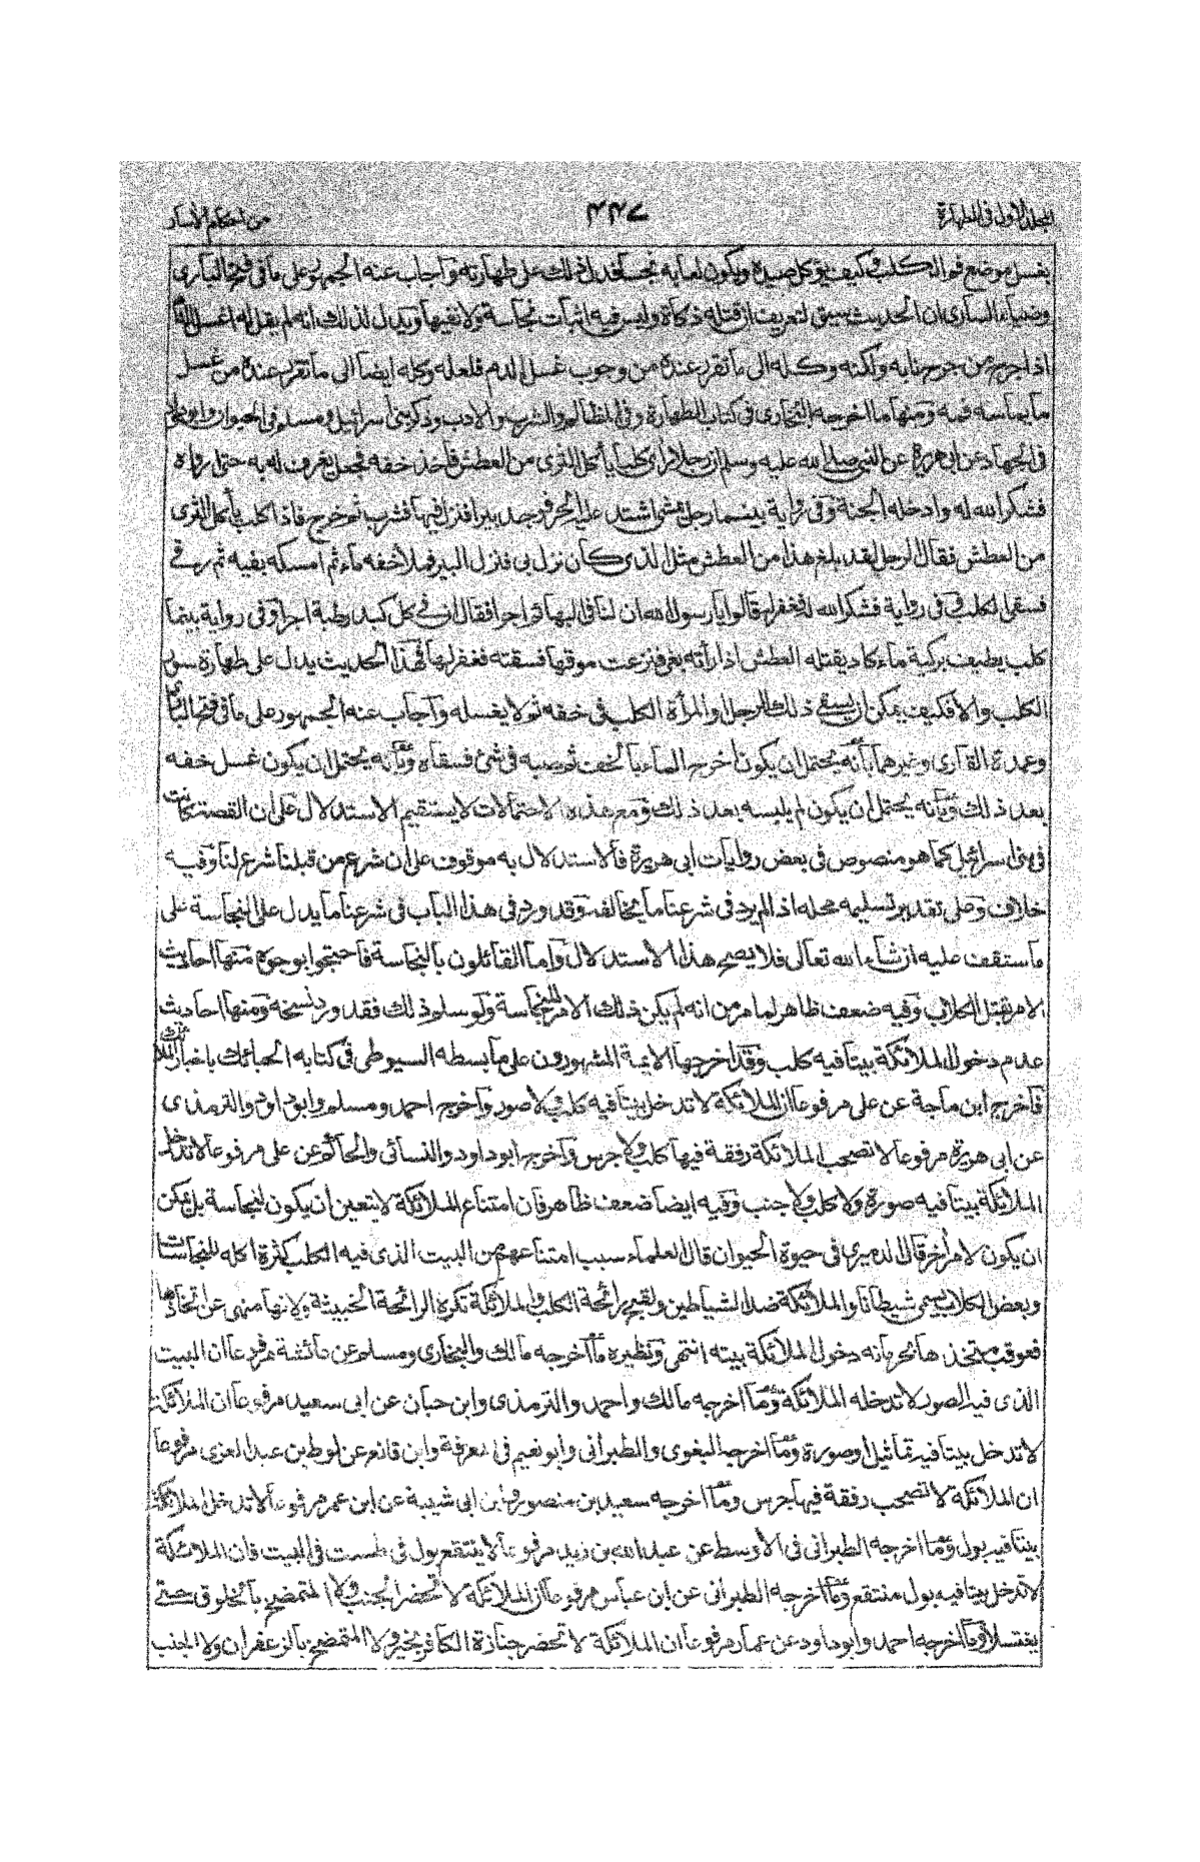 المجلد الاول فى الطهارة ٤٤٧ من احكام الأسار
يغسل موضع فم الكلب وكيف يؤكل صيده ويكون لعابه نجسا فدل ذلك على طهارته وآجاب عنه الجمهور على ما فى فتح البارى
وضياء السارى ان الحديث سيق لتعريف ان قتله ذكاة وليس فيه اثبات نجاسة ولا نفيها ويدل لذلك انه لم يقل له اغسل الدم
اذا جرح من جرح نابه ولكنه وكله الى ما تقرر عنده من وجوب غسل الدم فلعله وكله ايضا الى ما تقرر عنده من غسل
ما يماسه فمه ومنها ما اخرجه البخارى فى كتاب الطهارة وفى المظالم والشرب والادب وذكر بنى اسرائيل ومسلم فى الحيوان وابو داود
فى الجهاد عن ابى هريرة عن النبى صلى الله عليه وسلم ان رجلا رأى كلبا يأكل الثرى من العطش فأخذ خفه فجعل يغرف له به حتى ارواه
فشكر الله له وادخله الجنة وفى رواية بينما رجل يمشى اشتد عليه الحر فوجد بيرا فنزل فيها فشرب ثم خرج فاذا كلب يأكل الثرى
من العطش فقال الرجل لقد بلغ هذا من العطش مثل الذى كان نزل بى فنزل البير فملأ خفه ماء ثم امسكه بفيه ثم رقى
فسقى الكلب وفى رواية فشكر الله له فغفر له قالوا يا رسول الله ان لنا فى البهائم اجرا فقال ان فى كل كبد رطبة اجرا وفى رواية بينما
كلب يطيف بركية ماء كاد يقتله العطش اذا رأته بغى فنزعت موقها فسقته فغفر لها فهذا الحديث يدل على طهارة سور
الكلب والا فكيف يمكن ان يسقى ذلك الرجل او المرأة الكلب فى خفه ثم لا يغسله وآجاب عنه الجمهور على ما فى فتح البارى
وعمدة القارى وغيرهما بأنه يحتمل ان يكون اخرج الماء بالخف ثم صبه فى شئ فسقاه وبأنه يحتمل ان يكون غسل خفه
بعد ذلك وبأنه يحتمل ان يكون لم يلبسه بعد ذلك ومع هذه الاحتمالات لا يستقيم الاستدلال على ان القصة كانت
فى بنى اسرائيل كما هو منصوص فى بعض روايات ابى هريرة فالاستدلال به موقوف على ان شرع من قبلنا شرع لنا وفيه
خلاف وعلى تقدير تسليمه محله اذا لم يرد فى شرعنا ما يخالفه وقد ورد فى هذا الباب فى شرعنا ما يدل على النجاسة على
ما ستقف عليه ان شاء الله تعالى فلا يصح هذا الاستدلال واما القائلون بالنجاسة فاحتجوا بوجوه منها احاديث
الامر بقتل الكلاب وفيه ضعف ظاهر لما مر من انه لم يكن ذلك الامر للنجاسة ولو سلم ذلك فقد ورد نسخه ومنها احاديث
عدم دخول الملائكة بيتا فيه كلب وقد اخرجها الايمة المشهورون على ما بسطه السيوطى فى كتابه الحبائك باخبار الملائك
فأخرج ابن ماجة عن على مرفوعا ان الملائكة لا تدخل بيتا فيه كلب ولا صور وآخرج احمد ومسلم وابو داود والترمذى
عن ابى هريرة مرفوعا لا تصحب الملائكة رفقة فيها كلب ولا جرس وآخرج ابو داود والنسائى والحاكم عن على مرفوعا لا تدخل
الملائكة بيتا فيه صورة ولا كلب ولا جنب وفيه ايضا ضعف ظاهر فان امتناع الملائكة لا يتعين ان يكون لنجاسة بل يمكن
ان يكون لامر آخر قال الدميرى فى حيوة الحيوان قال العلماء سبب امتناعهم من البيت الذى فيه الكلب كثرة اكله للنجاسات
وبعض الكلاب يسمى شيطانا والملائكة ضد الشياطين ولقبح رائحة الكلب والملائكة تكره الرائحة الخبيثة ولانها منهى عن اتخاذها
فعوقب متخذها بحرمانه دخول الملائكة بيته انتهى ونظيره ما اخرجه مالك والبخارى ومسلم عن عائشة مرفوعا ان البيت
الذى فيه الصور لا تدخله الملائكة وما اخرجه مالك واحمد والترمذى وابن حبان عن ابى سعيد مرفوعا ان الملائكة
لا تدخل بيتا فيه تماثيل او صورة وما اخرجه البغوى والطبرانى وابو نعيم فى المعرفة وابن قانع عن لوط بن عبد العزى مرفوعا
ان الملائكة لا تصحب رفقة فيها جرس وما اخرجه سعيد بن منصور وابن ابى شيبة عن ابن عمر مرفوعا لا تدخل الملائكة
بيتا فيه بول وما اخرجه الطبرانى فى الاوسط عن عبد الله بن زيد مرفوعا لا ينتقع بول فى طست فى البيت فان الملائكة
لا تدخل بيتا فيه بول منتقع وما اخرجه الطبرانى عن ابن عباس مرفوعا ان الملائكة لا تحضر الجنب ولا المتمضخ بالخلوق حتى
يغتسلا وما اخرجه احمد وابو داود عن عمار مرفوعا ان الملائكة لا تحضر جنازة الكافر بخير ولا المتمضخ بالزعفران ولا الجنب